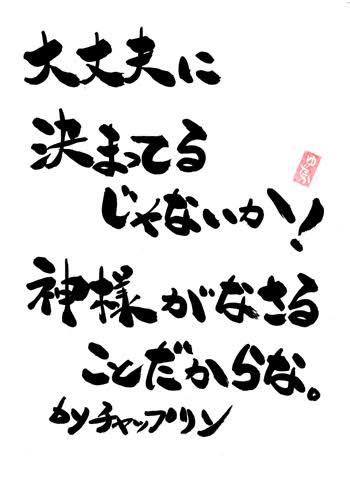 大丈夫に
決まってる
じゃないか！
神様がなさる
ことだからな。
byチャップリン
ゆたか